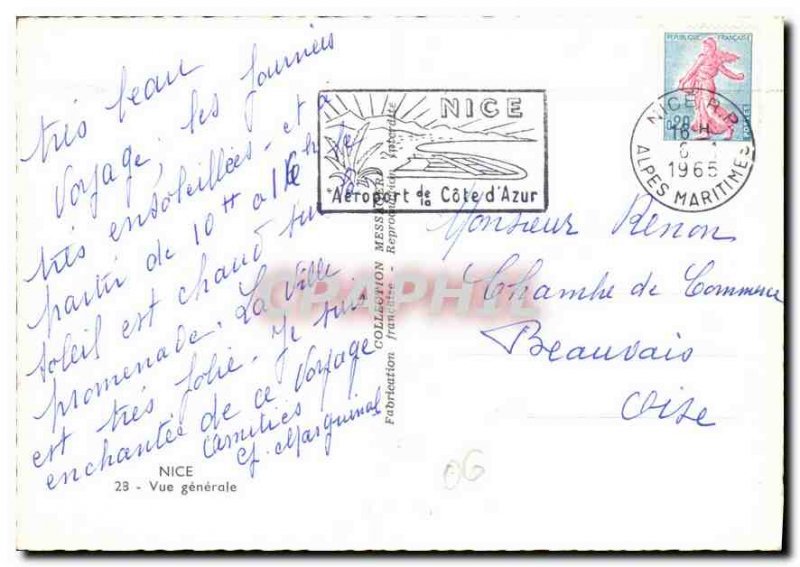 très beau
Voyage, les journées
très ensoleillées - et à
partir de 10H à 16h le
soleil est chaud sur la
promenade. La Ville
est très jolie - Je suis
enchantée de ce Voyage
Amitiés
NICE
28 - Vue générale
COLLECTION MESSAGER
Fabrication française - Reproduction interdite
NICE
Aéroport de la Côte d'Azur
REPUBLIQUE FRANÇAISE
0,20
NICE R.P.
16 H
1965
ALPES MARITIMES
Monsieur Renon
Chambe de Commerce
Beauvais
Oise
06
CPAPHIL